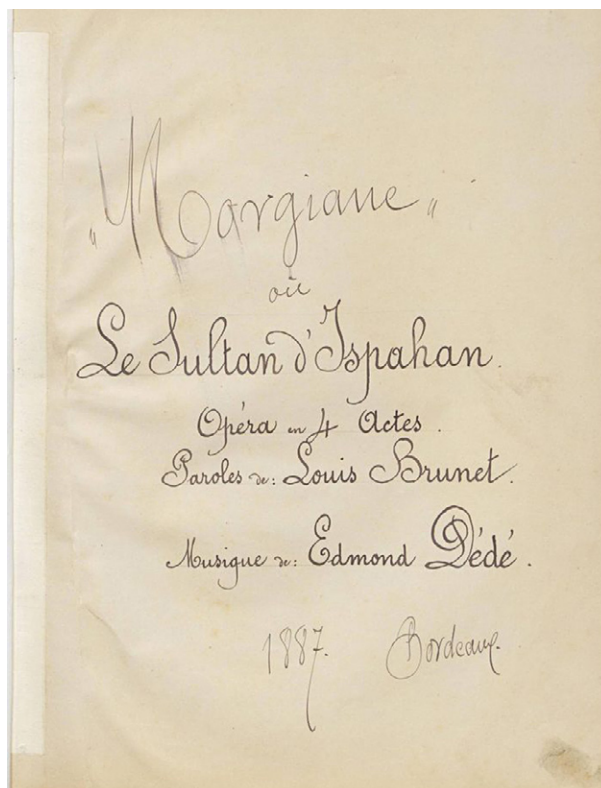 „Morgiane„
ou
Le Sultan d'Ispahan.
Opéra en 4 Actes.
Paroles de: Louis Brunet.
Musique de: Edmond Dédé.
1887. Bordeaux.